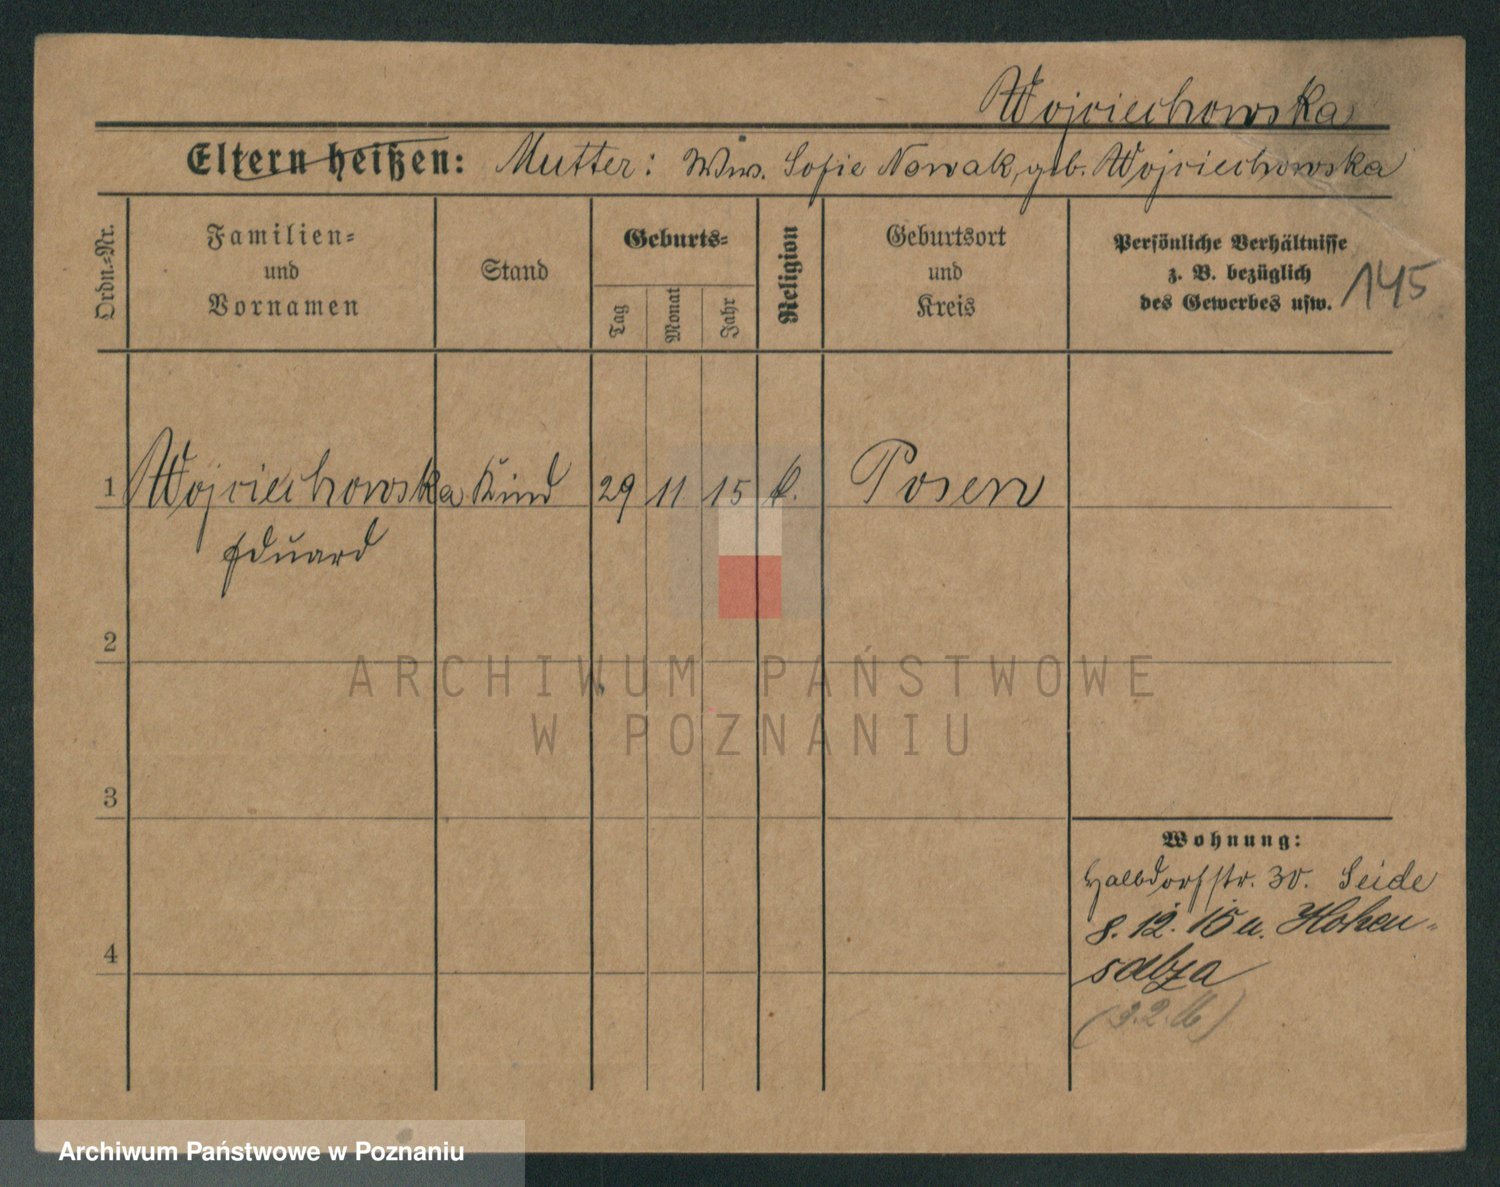 Wojciechowska
Eltern heißen: Mutter: Wws. Sofie Nowak, geb. Wojciechowska
Ordn.-Nr.
Familien-
und
Vornamen
Stand
Geburts-
Tag
Monat
Jahr
Religion
Geburtsort
und
Kreis
Persönliche Verhältnisse
z. B. bezüglich
des Gewerbes usw.
145
1 Wojciechowska Kind 29 11 15 k. Posen
Eduard
2
3
4
Wohnung:
Halbdorfstr. 30. Seide
8. 12. 15 n. Hohen-
salza
ARCHIWUM PAŃSTWOWE
W POZNANIU
Archiwum Państwowe w Poznaniu